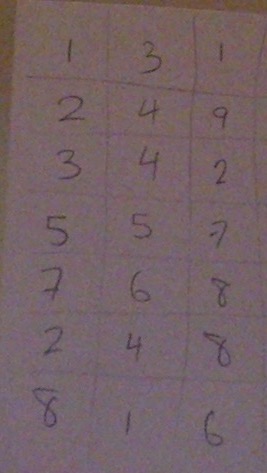 1 3 1
2 4 9
3 4 2
5 5 7
7 6 8
2 4 8
8 1 6